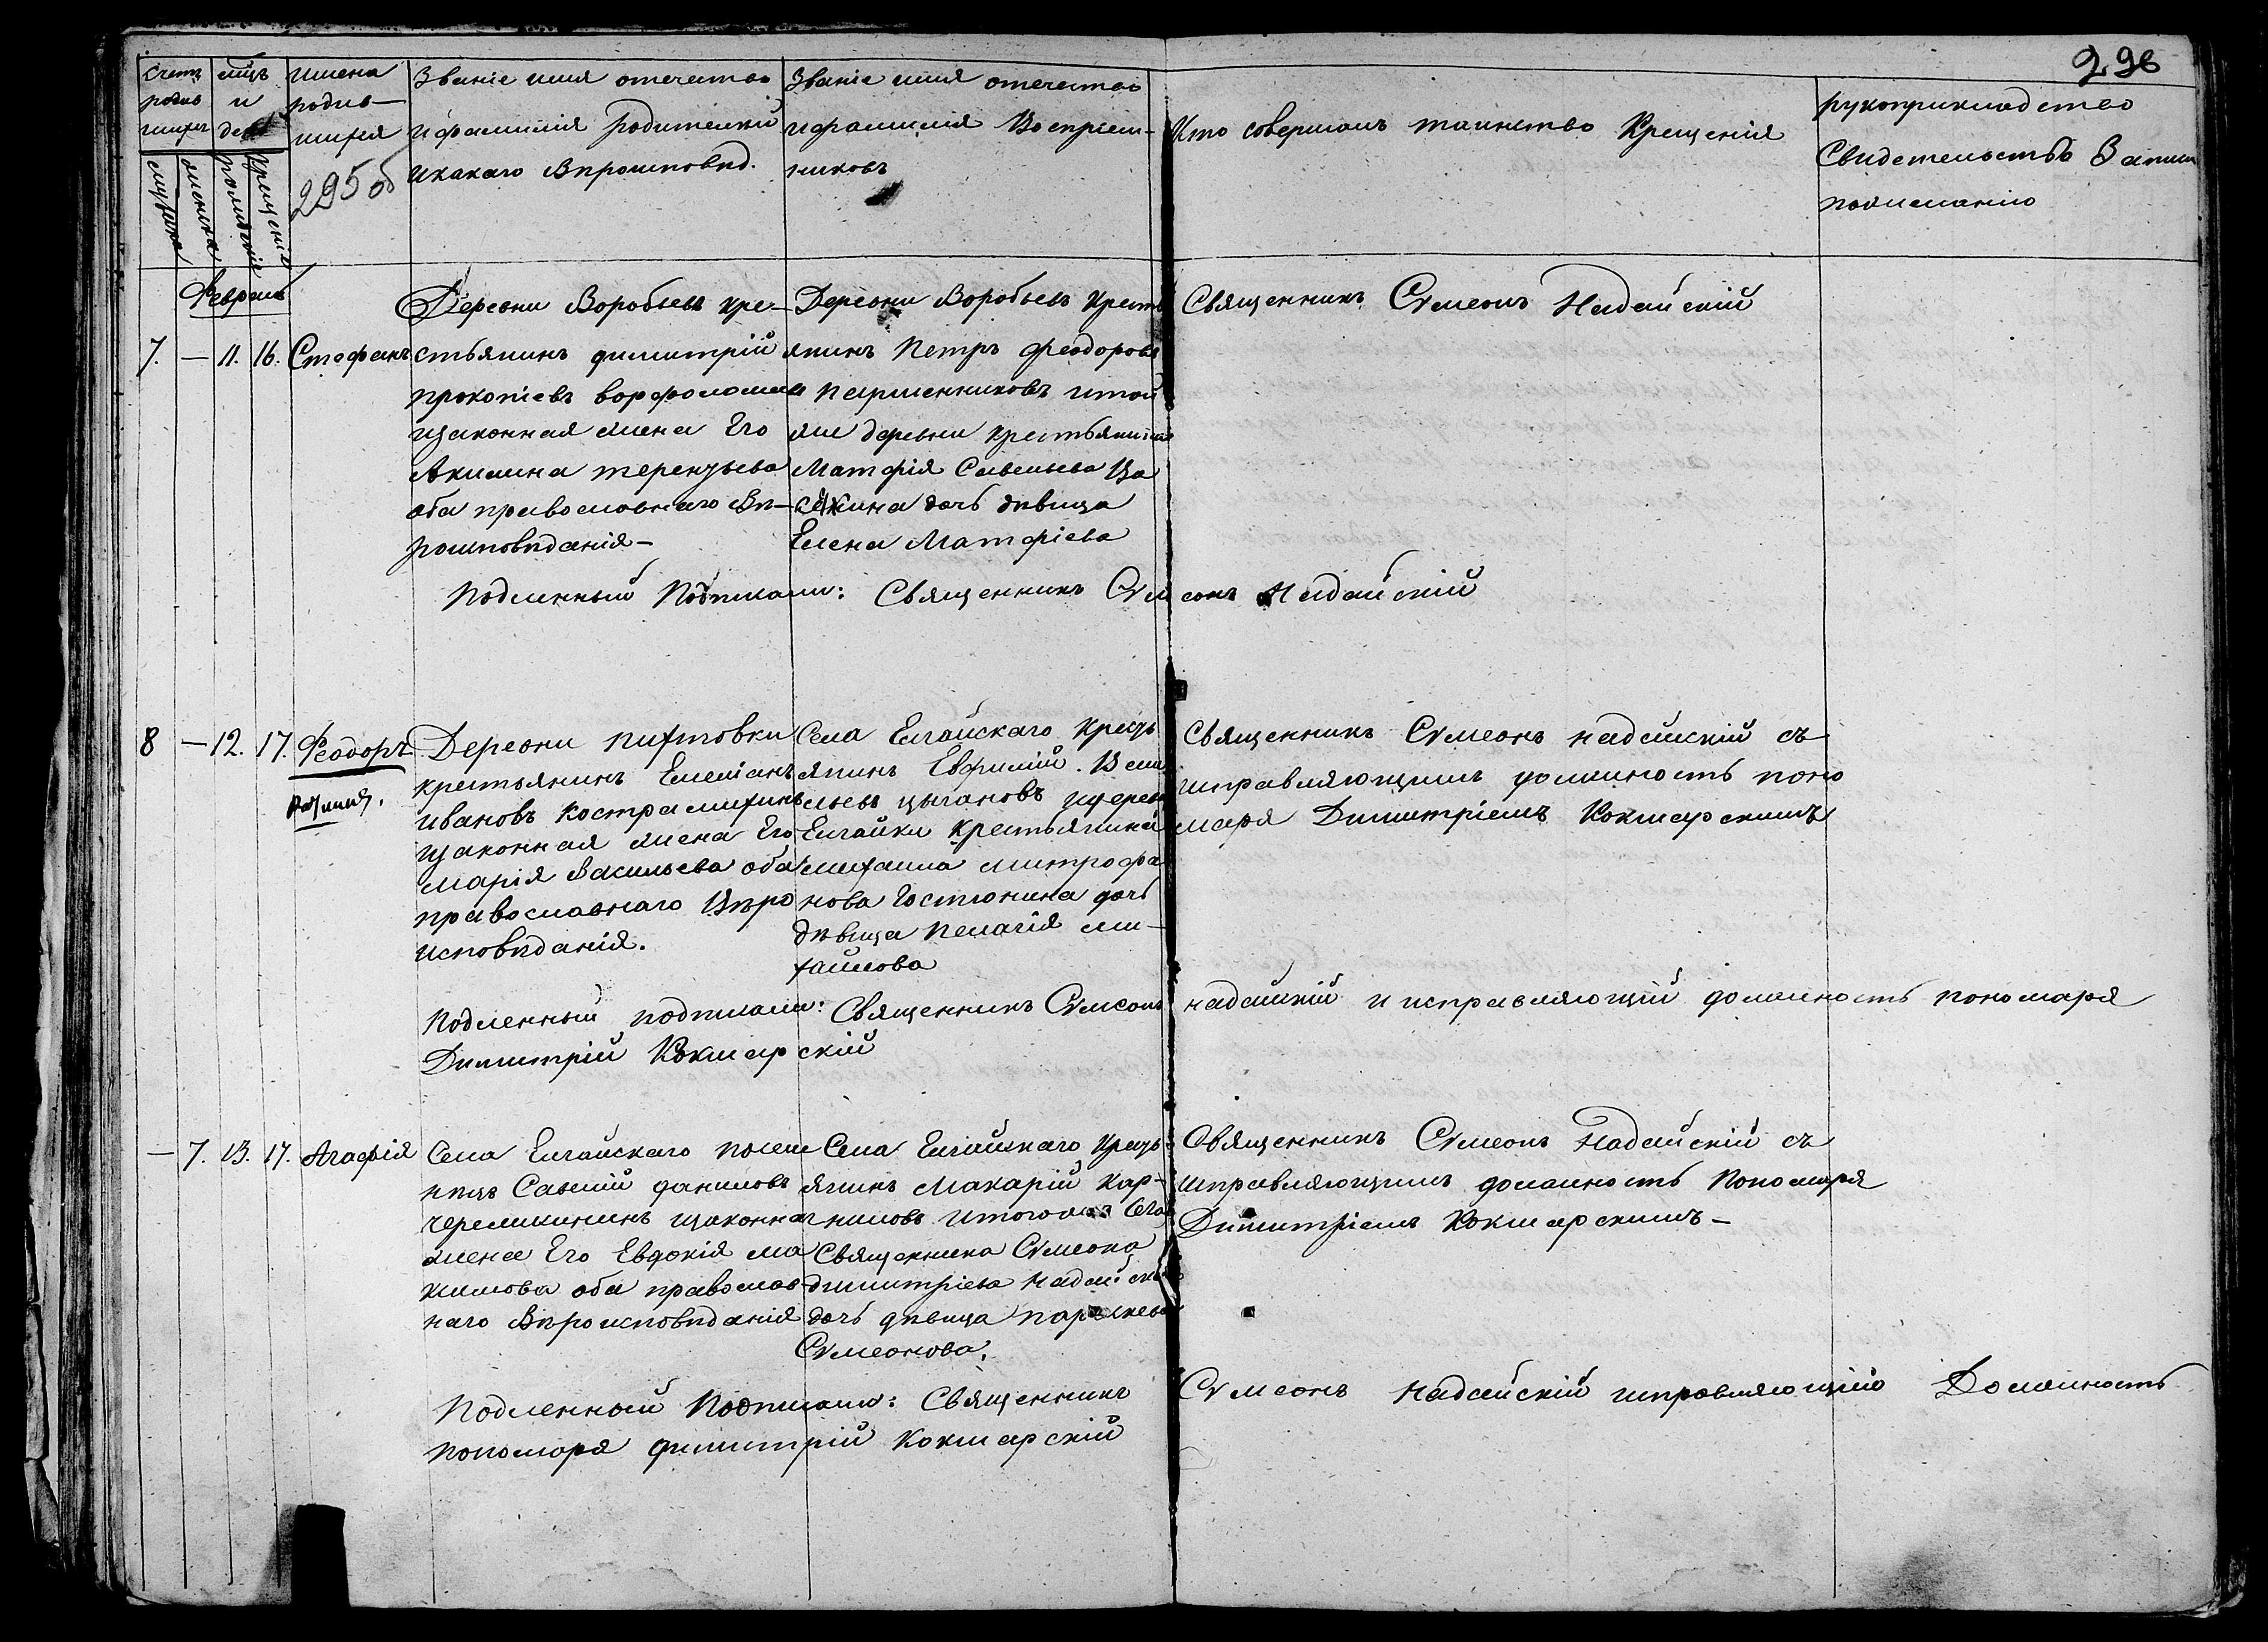 296
счетъ родив шихся
мужеска
женска
мцъ и день
рожденія
крещенія
имена родив— шихся
295 об
Званіе имя отечество
и фамилія родителей
и какаго вѣроисповѣд.
Званіе имя отечество
и фамилія Воспріем—
никовъ
Кто совершалъ таинство Крещенія
рукоприкладство
Свидетельствъ Записи
по желанію
Февраль
7. — 11. 16. Стефанъ
Деревни Воробьевъ кре—
стьянинъ димитрій
прокопіевъ ворфоломеевъ
изаконная жена Его
Акилина терентьева
оба православнаго вѣ—
роисповѣданія—
Деревни Воробьевъ Кресть
янинъ Петръ феодоровъ
Паршенниковъ итой
же деревни крестьянина
Матфія Савельева Ва
сякина дочь дѣвица
Елена Матфіева
Священникъ Сѵмеонъ Надеинскій
Подленный Подписали: Священникъ Сѵмеонъ Надеинскій
8 — 12. 17. Феодоръ
Деревни пихтовки
крестьянинъ Емеліанъ
ивановъ Костромитинъ
изаконная жена Его
Марія Васильева оба
православнаго Вѣро
исповѣданія.
Села Елгайскаго Кресть
янинъ Евфимій Васи
льевъ цыгановъ идерев
Елгайки крестьянина
михаила митрофа
нова Гостюнина дочь
дѣвица пелагія ми—
хайлова
Священникъ Сѵмеонъ надеинскій съ
исправляющимъ должность поно
маря Димитріемъ Кокшарскимъ
Подленный подписали: Священникъ Сѵмеонъ надеинскій и исправляющій должность пономаря
Димитрій Кокшарскій
— 7. 13. 17. Агафія
Села Елгайскаго посел
нецъ Савелій даниловъ
черемикинъ изаконная
жена Его Евдокія ма
кимова оба православ
наго Вѣроисповѣданія
Села Елгайскаго Кресть
янинъ Макарій Кар—
ниловъ итогожъ Села
Священника Сѵмеона
димитріева Надеинска
дочь дѣвица параскева
Сѵмеонова.
Священникъ Сѵмеонъ Надеинскій съ
исправляющимъ должность Пономаря
Димитріемъ Кокшарскимъ—
Подленной Подписали: Священникъ Сѵмеонъ Надеинскій исправляющій Должность
пономоря димитрій Кокшарскій